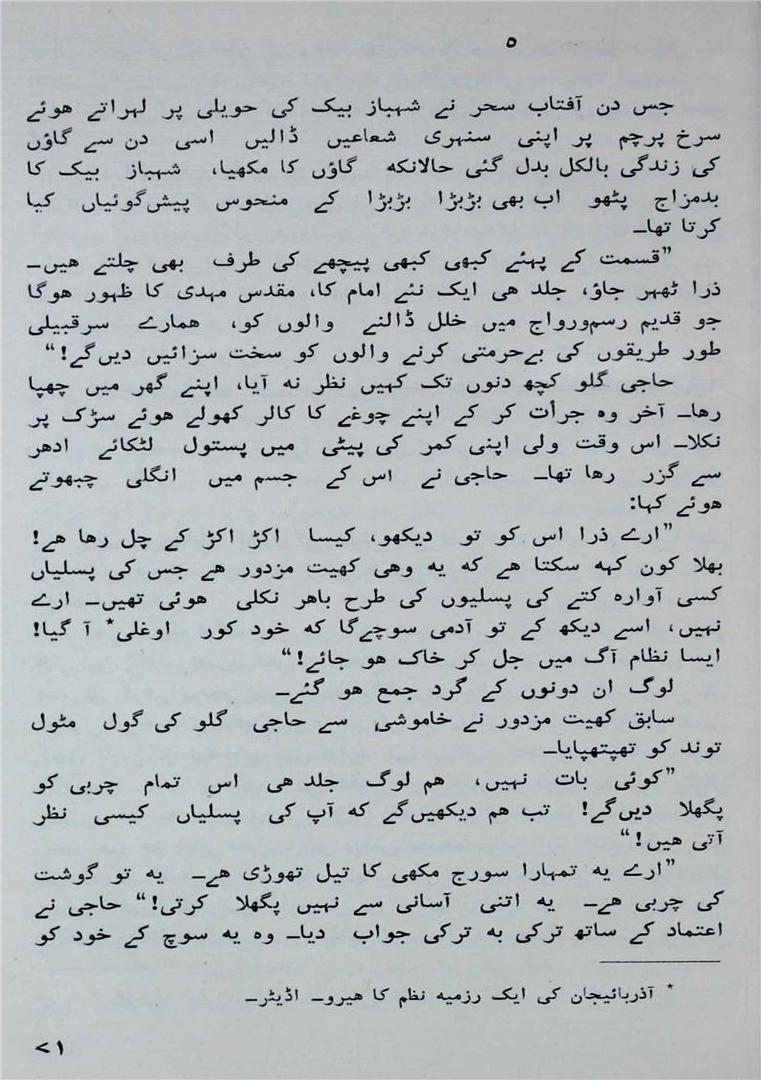 ۵
جس دن آفتاب سحر نے شہباز بیک کی حویلی پر لہراتے ھوئے
سرخ پرچم پر اپنی سنہری شعاعیں ڈالیں اسی دن سے گاؤں
کی زندگی بالکل بدل گئی حالانکہ گاؤں کا مکھیا، شہباز بیک کا
بدمزاج پٹھو اب بھی بڑبڑا بڑبڑا کے منحوس پیش‌گوئیاں کیا
کرتا تھا۔
”قسمت کے پہئے کبھی کبھی پیچھے کی طرف بھی چلتے ھیں۔
ذرا ٹھہر جاؤ، جلد ھی ایک نئے امام کا، مقدس مہدی کا ظہور ھوگا
جو قدیم رسم‌ورواج میں خلل ڈالنے والوں کو، ھمارے سرقبیلی
طور طریقوں کی بےحرمتی کرنے والوں کو سخت سزائیں دیں‌گے!“
حاجی گلو کچھ دنوں تک کہیں نظر نہ آیا، اپنے گھر میں چھپا
رھا۔ آخر وہ جرأت کر کے اپنے چوغے کا کالر کھولے ھوئے سڑک پر
نکلا۔ اس وقت ولی اپنی کمر کی پیٹی میں پستول لٹکائے ادھر
سے گزر رھا تھا۔ حاجی نے اس کے جسم میں انگلی چبھوتے
ھوئے کہا:
”ارے ذرا اس کو تو دیکھو، کیسا اکڑ اکڑ کے چل رھا ھے!
بھلا کون کہہ سکتا ھے کہ یہ وھی کھیت مزدور ھے جس کی پسلیاں
کسی آوارہ کتے کی پسلیوں کی طرح باھر نکلی ھوئی تھیں۔ ارے
نہیں، اسے دیکھ کے تو آدمی سوچےگا کہ خود کور اوغلی* آ گیا!
ایسا نظام آگ میں جل کر خاک ھو جائے!“
لوگ ان دونوں کے گرد جمع ھو گئے۔
سابق کھیت مزدور نے خاموشی سے حاجی گلو کی گول مٹول
توند کو تھپتھپایا۔
”کوئی بات نہیں، ھم لوگ جلد ھی اس تمام چربی کو
پگھلا دیں‌گے! تب ھم دیکھیں‌گے کہ آپ کی پسلیاں کیسی نظر
آتی ھیں!“
”ارے یہ تمہارا سورج مکھی کا تیل تھوڑی ھے۔ یہ تو گوشت
کی چربی ھے۔ یہ اتنی آسانی سے نہیں پگھلا کرتی!“ حاجی نے
اعتماد کے ساتھ ترکی بہ ترکی جواب دیا۔ وہ یہ سوچ کے خود کو
* آذربائیجان کی ایک رزمیہ نظم کا ھیرو۔ اڈیٹر۔
۷۱